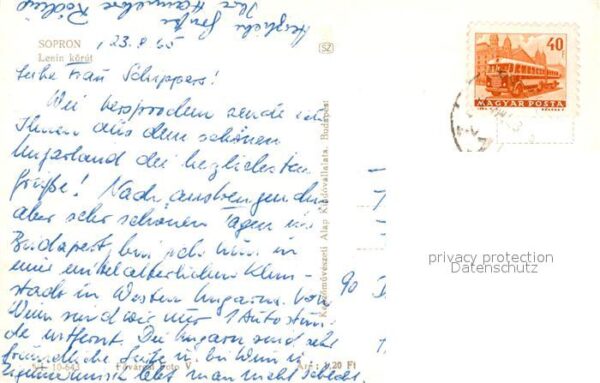 Herzliche Grüße
Ihre Hannelore
SOPRON
Lenin körút
, 23.8.65
Liebe Frau Schippers!
Wie versprochen sende ich
Ihnen aus dem schönen
Ungarland die herzlichsten
Grüße! Nach anstrengenden
aber sehr schönen Tagen in
Budapest, bin ich nun in
eine mittelalterlichen Klein-
stadt in Western Ungarn. Von
Wien sind wir nur 1 Autostun-
de entfernt. Die Ungarn sind sehr
freundliche Leute u. bei Wein u.
Zigeunermusik lebt man nicht schlecht.
10-643
Fővárosi Foto V.
Ár: 1,20 Ft
Képzőművészeti Alap Kiadóvállalata, Budapest
SZ
40 f
MAGYAR POSTA
90
privacy protection
Datenschutz